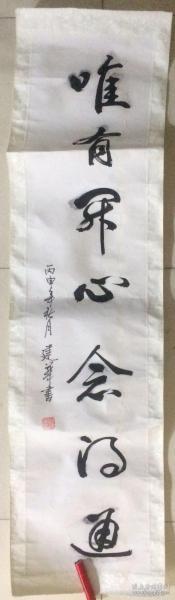 唯有开心念得通
丙申年秋月 建华书